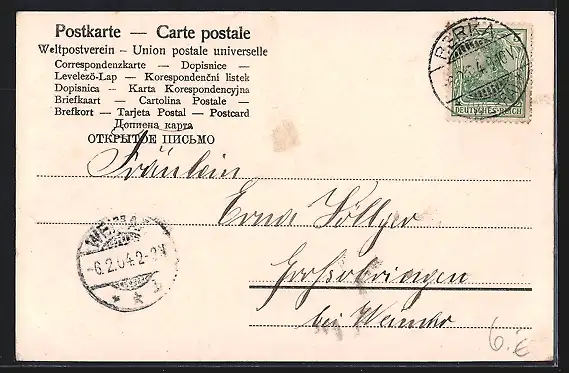 Postkarte — Carte postale
Weltpostverein – Union postale universelle
Correspondenzkarte — Dopisnice —
Levelező-Lap — Korespondenční listek
Dopisnica — Karta Korespondencyjna
Briefkaart — Cartolina Postale —
Brefkort — Tarjeta Postal — Postcard
Дописна карта
ОТКРЫТОЕ ПИСЬМО
BERKA
DEUTSCHES REICH
Fräulein
Erna Göllger
WEIMAR
6.2.04 2-3N
* * 1
Grossobringen
bei Weimar
6.€